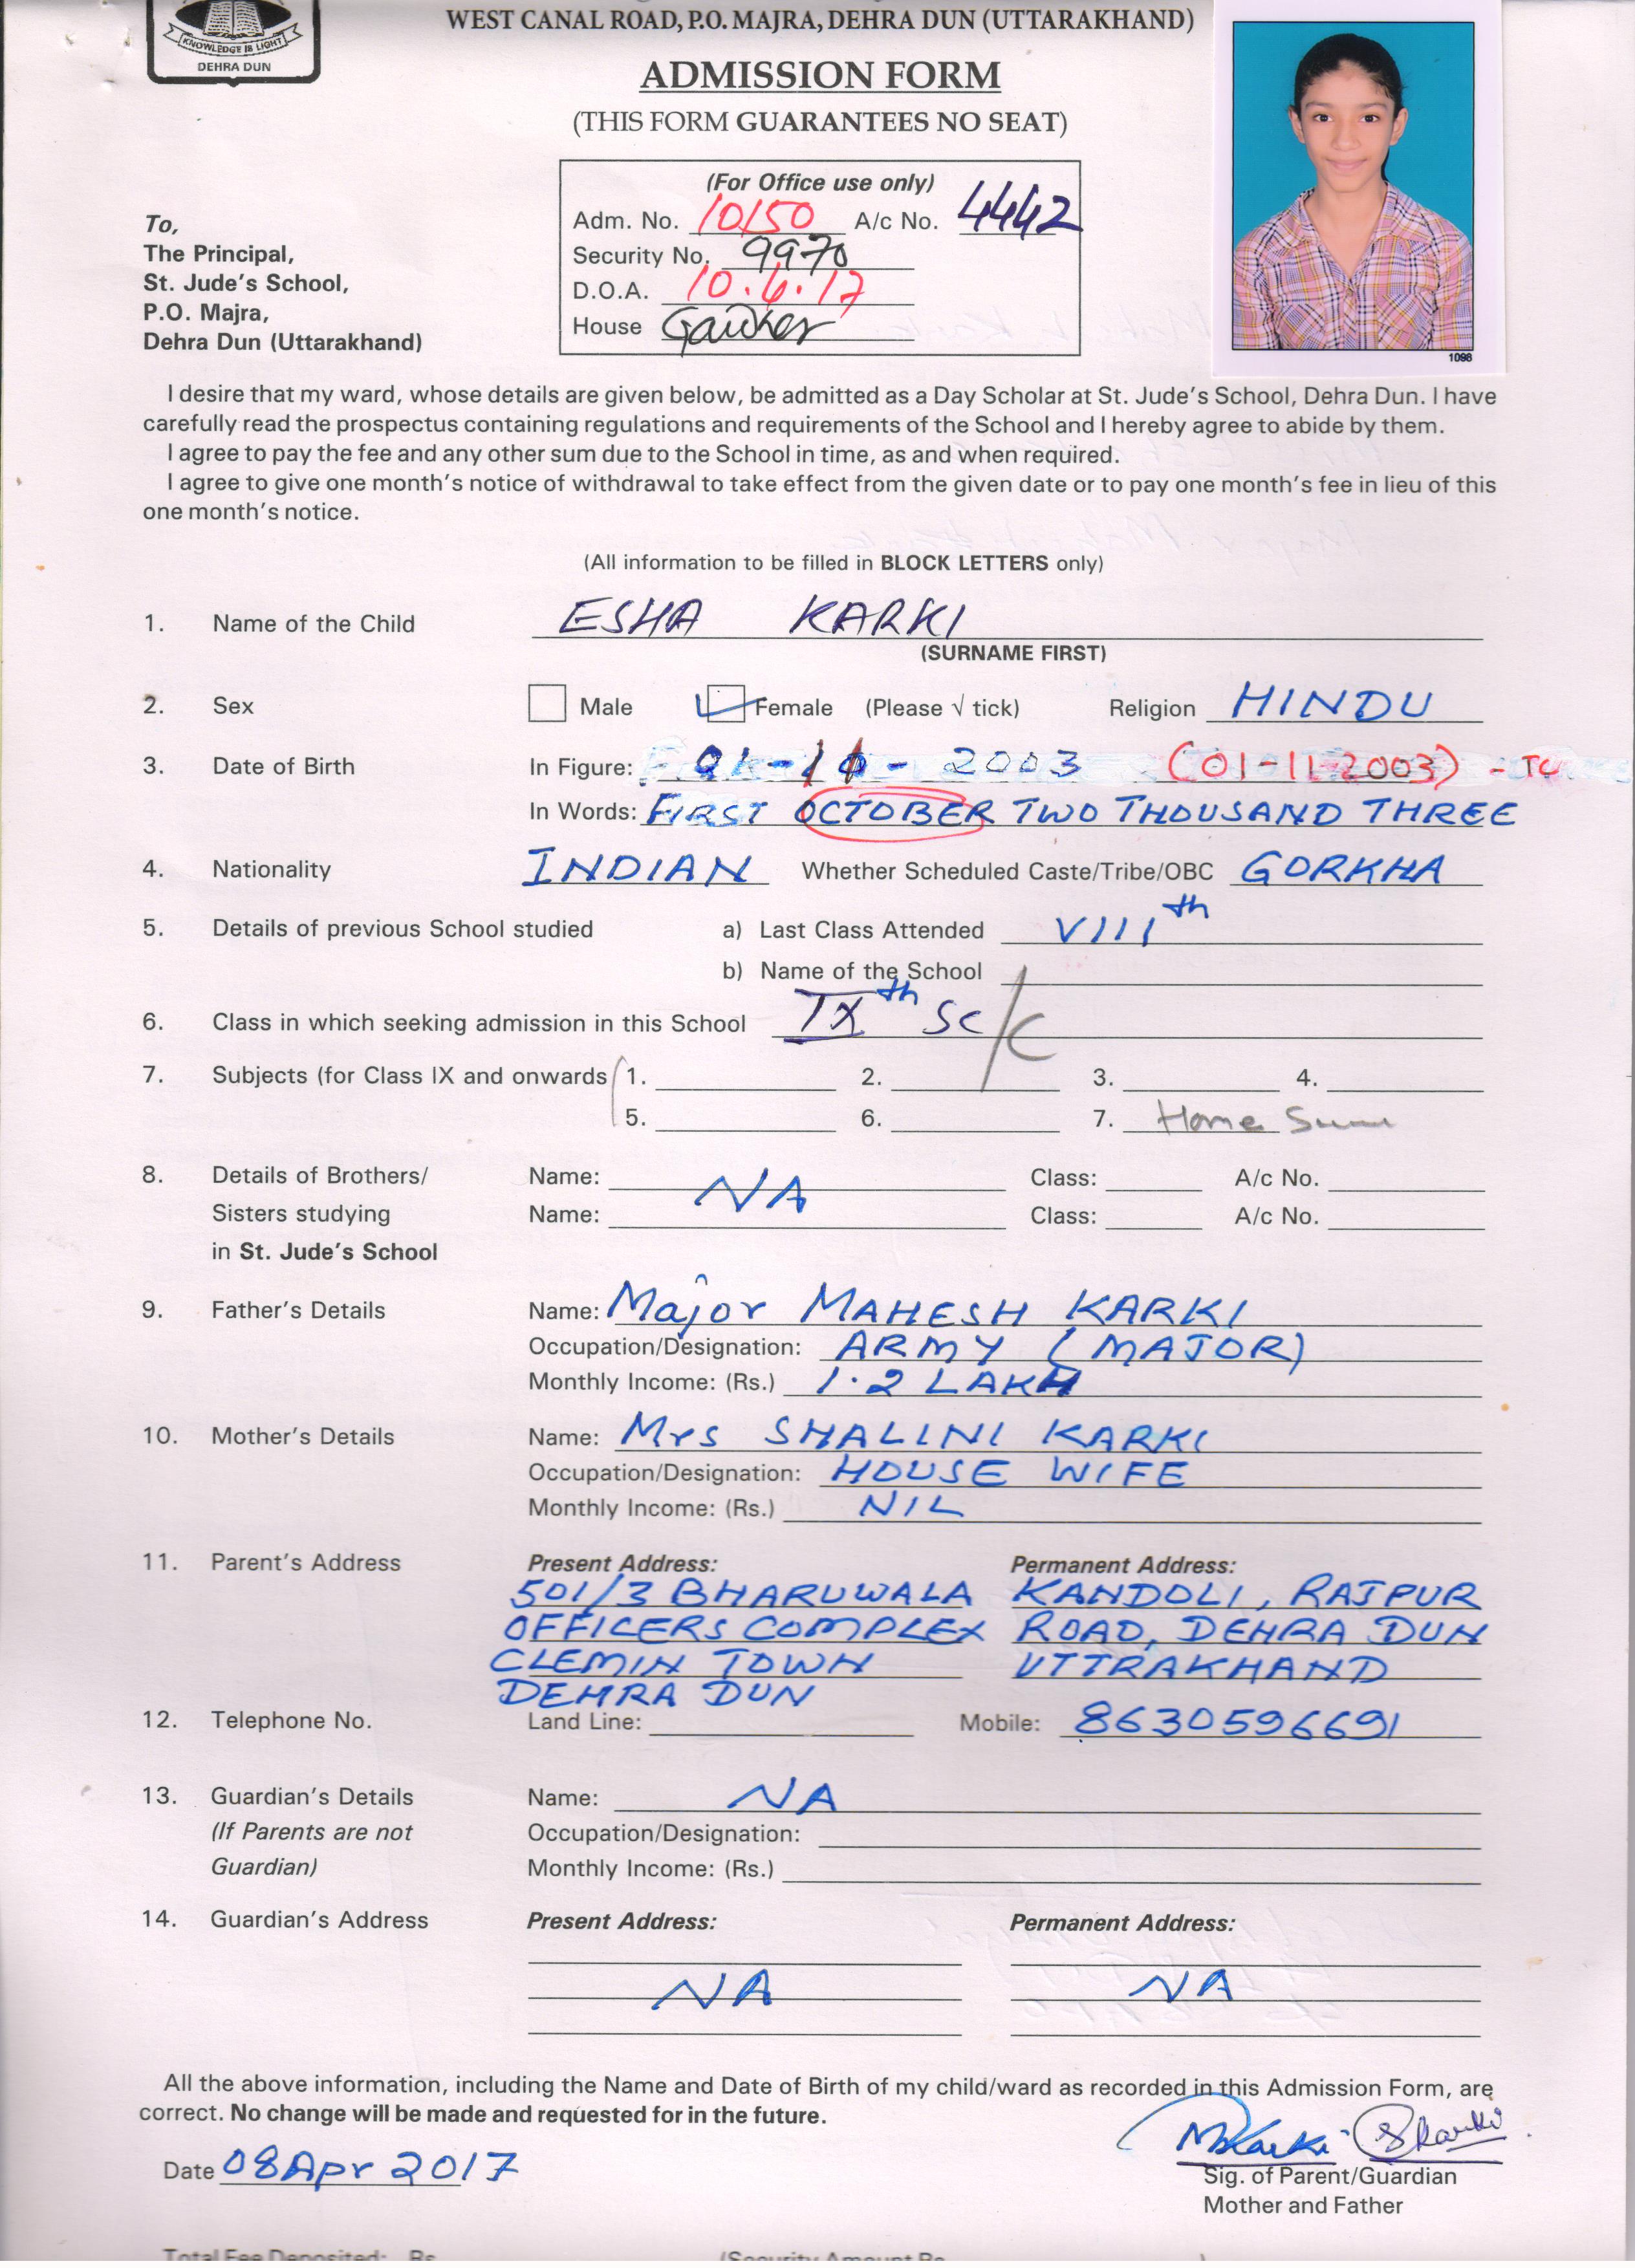 KNOWLEDGE IS LIGHT
DEHRA DUN
WEST CANAL ROAD, P.O. MAJRA, DEHRA DUN (UTTARAKHAND)
ADMISSION FORM
(THIS FORM GUARANTEES NO SEAT)
(For Office use only)
Adm. No. 10150 A/c No. 4442
Security No. 9970
D.O.A. 10.4.17
House
1098
To,
The Principal,
St. Jude's School,
P.O. Majra,
Dehra Dun (Uttarakhand)
I desire that my ward, whose details are given below, be admitted as a Day Scholar at St. Jude's School, Dehra Dun. I have
carefully read the prospectus containing regulations and requirements of the School and I hereby agree to abide by them.
I agree to pay the fee and any other sum due to the School in time, as and when required.
I agree to give one month's notice of withdrawal to take effect from the given date or to pay one month's fee in lieu of this
one month's notice.
(All information to be filled in BLOCK LETTERS only)
1. Name of the Child ESHA KARKI
(SURNAME FIRST)
2. Sex Male Female (Please √ tick) Religion HINDU
3. Date of Birth In Figure: 2003 (01-11-2003) - TC
In Words: FIRST OCTOBER TWO THOUSAND THREE
4. Nationality INDIAN Whether Scheduled Caste/Tribe/OBC GORKHA
5. Details of previous School studied a) Last Class Attended VIIIth
b) Name of the School
6. Class in which seeking admission in this School IXth SC/C
7. Subjects (for Class IX and onwards 1. 2. 3. 4.
5. 6. 7. Home
8. Details of Brothers/ Name: NA Class: A/c No.
Sisters studying Name: Class: A/c No.
in St. Jude's School
9. Father's Details Name: Major MAHESH KARKI
Occupation/Designation: ARMY (MAJOR)
Monthly Income: (Rs.) 1.2 LAKH
10. Mother's Details Name: Mrs SHALINI KARKI
Occupation/Designation: HOUSE WIFE
Monthly Income: (Rs.) NIL
11. Parent's Address Present Address: Permanent Address:
501/3 BHARUWALA KANDOLI, RAJPUR
OFFICERS COMPLEX ROAD, DEHRA DUN
CLEMIN TOWN UTTRAKHAND
DEHRA DUN
12. Telephone No. Land Line: Mobile: 8630596691
13. Guardian's Details Name: NA
(If Parents are not Occupation/Designation:
Guardian) Monthly Income: (Rs.)
14. Guardian's Address Present Address: Permanent Address:
NA NA
All the above information, including the Name and Date of Birth of my child/ward as recorded in this Admission Form, are
correct. No change will be made and requested for in the future.
MKarki SKarki
Date 08 Apr 2017
Sig. of Parent/Guardian
Mother and Father
Total Fee Deposited: Rs. (Security Amount Rs. )